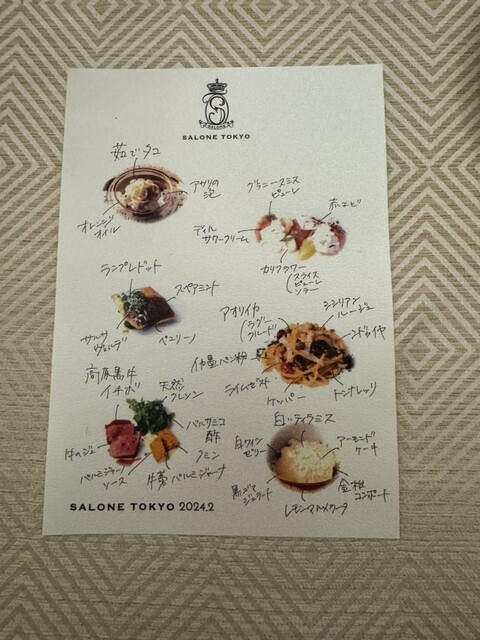 SALONE
SALONE TOKYO
茹でタコ
アサリの
泡
オレンジ
オイル
グラニースミス
ピューレ
赤エビ
ディル
サワークリーム
カリフラワー
スライス
ピューレ
ソテー
ランプレドット
スペアミント
サルサ
ヴェルデ
ペコリーノ
アオリイカ
ラグー
クルード
シシリアン
ルージュ
ンドゥイヤ
パン粉
ライムゼスト
ケッパー
トンナレッリ
高原黒牛
イチボ
天然
クレソン
バルサミコ
酢
クミン
牛のジュ
パルミジャーノ
ソース
牛蒡 パルミジャーナ
白いティラミス
白ワイン
ゼリー
アーモンド
ケーキ
ジェラート
レモンマルメラータ
金柑
コンポート
SALONE TOKYO 2024.2